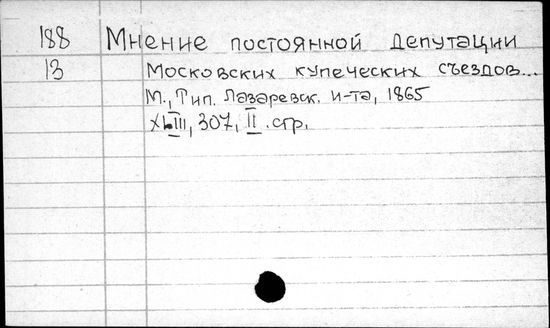 188 Мнение постоянной депутации
13 Московских купеческих съездов...
М., Тип. Лазаревск. и-та, 1865
XLIII, 307, II .стр.